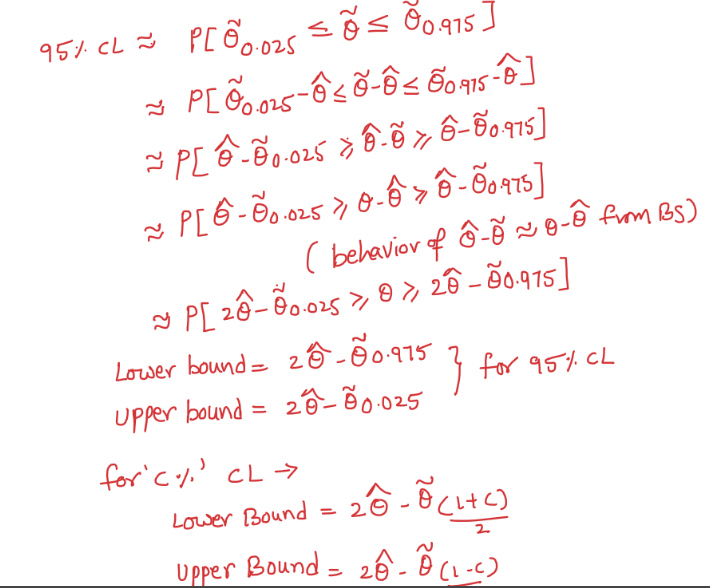 95% CL ≈ P[θ̃0.025 ≤ θ̃ ≤ θ̃0.975]
≈ P[θ̃0.025 - θ̂ ≤ θ̃ - θ̂ ≤ θ̃0.975 - θ̂]
≈ P[θ̂ - θ̃0.025 ≥ θ̂ - θ̃ ≥ θ̂ - θ̃0.975]
≈ P[θ̂ - θ̃0.025 ≥ θ - θ̂ ≥ θ̂ - θ̃0.975]
(behavior of θ̂ - θ̃ ≈ θ - θ̂ from BS)
≈ P[2θ̂ - θ̃0.025 ≥ θ ≥ 2θ̂ - θ̃0.975]
Lower bound = 2θ̂ - θ̃0.975 } for 95% CL
Upper bound = 2θ̂ - θ̃0.025
for 'c%' CL →
Lower Bound = 2θ̂ - θ̃(1+c)/2
Upper Bound = 2θ̂ - θ̃(1-c)